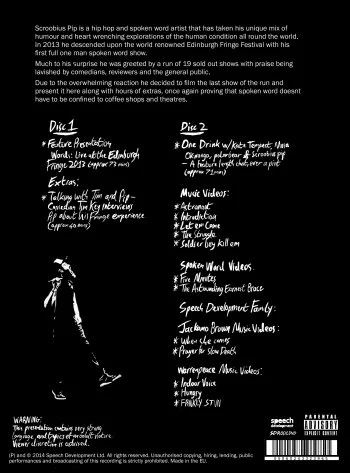 Scroobius Pip is a hip hop and spoken word artist that has taken his unique mix of
humour and heart wrenching explorations of the human condition all round the world.
In 2013 he descended upon the world renowned Edinburgh Fringe Festival with his
first full one man spoken word show.
Much to his surprise he was greeted by a run of 19 sold out shows with praise being
lavished by comedians, reviewers and the general public.
Due to the overwhelming reaction he decided to film the last show of the run and
present it here along with hours of extras, once again proving that spoken word doesnt
have to be confined to coffee shops and theatres.
Disc 1
* Feature Presentation
Words: Live at the Edinburgh
Fringe 2013 (approx 73 min)
Extras:
* Talking with Tim and Pip -
Comedian Tim Key Interviews
Pip about his Fringe experience
(approx 40 mins)
Disc 2
* One Drink w/ Kate Tempest, 
 polarbear & Scroobius Pip
- A feature length chat over a pint
(approx 71 min)
Music Videos:
* Astronaut
* Introduction
* Let em Come
* The Struggle
* Soldier Boy kill em
Spoken Word Videos:
* Five Minutes
* The Astounding Earnest Brace
Speech Development Family:
Jackamo Brown Music Videos:
* When she comes
* Prayer for Slow Death
Warrenpeace Music Videos:
* Indoor Voice
* Hungry
* FRANKY STUN
WARNING:
This presentation contains very strong
language and topics of an adult nature.
Viewer discretion is advised.
speech
development
PARENTAL
ADVISORY
EXPLICIT CONTENT
(P) and © 2014 Speech Development Ltd. All rights reserved. Unauthorised copying, hiring, lending, public
performances and broadcasting of this recording is strictly prohibited. Made in the EU.